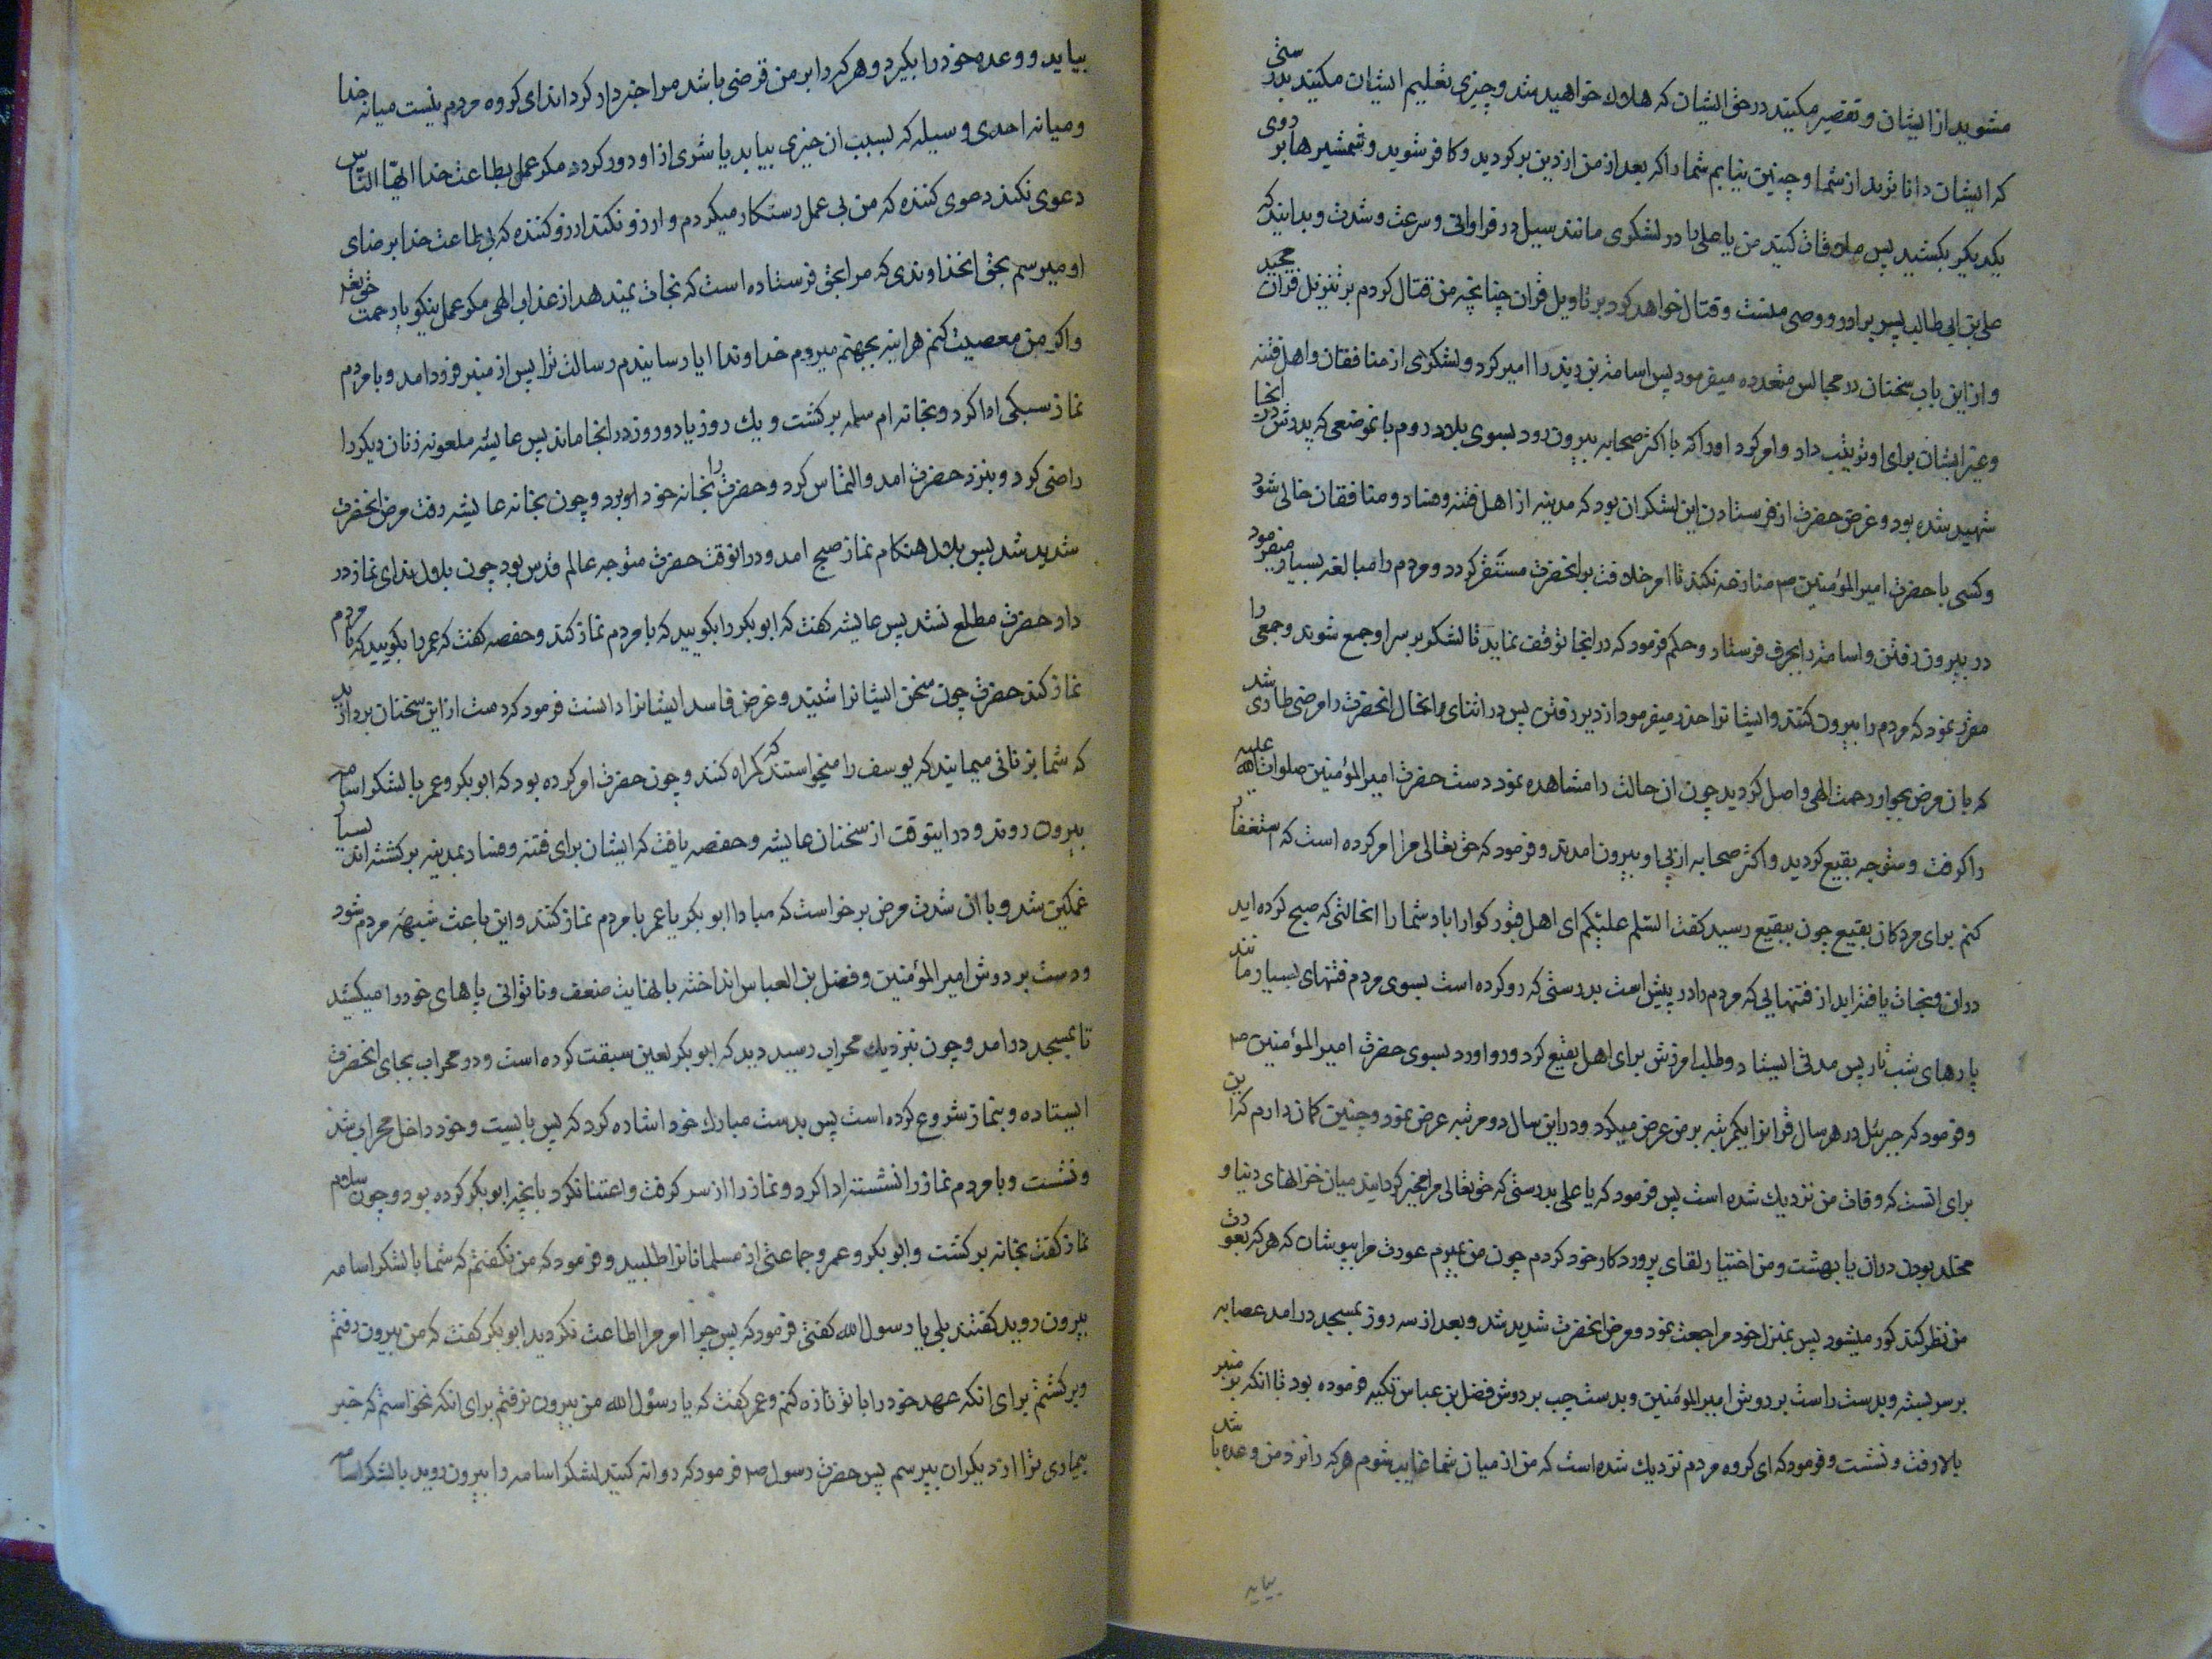 مشوید از ایشان و تقصیر مکنید در حق ایشان که هلاک خواهید شد و چیزی تعلیم ایشان مکنید بدرستی
که ایشان داناترند از شما و چنین نیابم شما را که بعد از من از دین برگردید و کافر شوید و شمشیرها بر روی
یکدیگر بکشید پس ملاقات کنید من یا علی را در لشکری مانند سیل در فراوانی و سرعت و شدت و بدانید که
علی بن ابی طالب پسر برادر و وصی منست و قتال خواهد کرد بر تاویل قران چنانچه من قتال کردم بر تنزیل قران مجید
و از این باب سخنان در مجالس متعدده میفرمود پس اسامة بن زید را امیر کرد و لشکری از منافقان و اهل فتنه
و غیر ایشان برای او ترتیب داد و امر کرد او را که با اکثر صحابه بیرون رود بسوی بلاد روم بانموضعی که پدرش در انجا
شهید شده بود و غرض حضرت از فرستادن این لشکر ان بود که مدینه از اهل فتنه و فساد و منافقان خالی شود
و کسی با حضرت امیر المؤمنین ص منازعه نکند تا امر خلافت بر انحضرت مستقر گردد و مردم را مبالغه بسیار میفرمود
در بیرون رفتن و اسامه را بجرف فرستاد و حکم فرمود که در انجا توقف نماید تا لشکر بر سر او جمع شوند و جمعی را
مقرر نمود که مردم را بیرون کنند و ایشانرا حذر میفرمود از دیر رفتن پس در اثنای انحال انحضرت را مرضی طاری شد
که بان مرض بجوار رحمت الهی واصل گردید چون ان حالت را مشاهده نمود دست حضرت امیر المؤمنین صلوات الله علیه
را گرفت و متوجه بقیع گردید و اکثر صحابه از پی او بیرون امدند و فرمود که حق تعالی مرا امر کرده است که استغفار
کنم برای مردکان بقیع چون ببقیع رسید گفت السلم علیکم ای اهل قبور گوارا باد شما را انحالتی که صبح کرده اید
دران و نجات یافته اید از فتنهایی که مردم را در پیش است بدرستی که رو کرده است بسوی مردم فتنهای بسیار مانند
پارهای شب تار پس مدتی ایستاد و طلب امرزش برای اهل بقیع کرد و رو اورد بسوی حضرت امیر المؤمنین ص
و فرمود که جبرئیل در هر سال قرانرا یکمرتبه بر من عرض میکرد و در این سال دو مرتبه عرض نمود و چنین گمان دارم که این
برای انست که وفات من نزدیک شده است پس فرمود که یا علی بدرستی که حق تعالی مرا مخیر گردانید میان خزانهای دنیا و
مخلد بودن دران یا بهشت و من اختیار لقای پروردکار خود کردم چون من بمیرم عورت مرا بپوشان که هر که بعورت
من نظر کند کور میشود پس بمنزل خود مراجعت نمود و مرض انحضرت شدید شد و بعد از سه روز بمسجد درامد عصابه
بر سر بسته و بدست راست بر دوش امیر المؤمنین و بدست چپ بر دوش فضل بن عباس تکیه فرموده بود تا انکه بر منبر
بالا رفت و نشست و فرمود که ای گروه مردم نزدیک شده است که من از میان شما غایب شوم هر که را نزد من وعده باشد
بیاید
بیاید و وعده خود را بگیرد و هر که را بر من قرضی باشد مرا خبردار گرداند ای گروه مردم نیست میانه خدا
و میانه احدی وسیله که بسبب ان خیری بیابد یا شری از او دور گردد مگر عمل بطاعت خدا ایها الناس
دعوی نکند دعوی کننده که من بی عمل رستگار میگردم و ارزو نکند ارزو کننده که بی طاعت خدا برضای
او میرسم بحق انخداوندی که مرا بحق فرستاده است که نجات نمیدهد از عذاب الهی مگر عمل نیکو با رحمت حق تعه
و اگر من معصیت کنم هراینه بجهنم میروم خداوندا ایا رسانیدم رسالت ترا پس از منبر فرود امد و با مردم
نماز سبکی ادا کرد و بخانه ام سلمه برگشت و یک روز یا دو روز در انجا ماند پس عایشه ملعونه زنان دیگر را
راضی کرد و بنزد حضرت امد و التماس کرد و حضرت را بخانه خود او برد و چون بخانه عایشه رفت مرض انحضرت
شدید شد پس بلال هنکام نماز صبح امد و در انوقت حضرت متوجه عالم قدس بود چون بلال ندای نماز در
داد حضرت مطلع نشد پس عایشه گفت که ابو بکر را بگویید که با مردم نماز کند و حفصه گفت که عمر را بگویید که با مردم
نماز کند حضرت چون سخن ایشانرا شنید و غرض فاسد ایشانرا دانست فرمود که دست از این سخنان بردارید
که شما بزنانی میمانید که یوسف را میخواستند که گمراه کنند و چون حضرت امر کرده بود که ابو بکر و عمر با لشکر اسامه
بیرون روند و در اینوقت از سخنان عایشه و حفصه یافت که ایشان برای فتنه و فساد بمدینه برگشته اند بسیار
غمگین شد و با ان شدت مرض برخواست که مبادا ابو بکر یا عمر با مردم نماز کنند و این باعث شبهه مردم شود
و دست بر دوش امیر المؤمنین و فضل بن العباس انداخته با نهایت ضعف و ناتوانی پاهای خود را میکشید
تا بمسجد درامد و چون بنزدیک محراب رسید دید که ابو بکر لعین سبقت کرده است و در محراب بجای انحضرت
ایستاده و بنماز شروع کرده است پس بدست مبارک خود اشاره کرد که پس بایست و خود داخل محراب شد
و نشست و با مردم نماز را نشسته ادا کرد و نماز را از سر گرفت و اعتنا نکرد بانچه ابو بکر کرده بود و چون سلام
نماز گفت بخانه برگشت و ابو بکر و عمر و جماعتی از مسلمانانرا طلبید و فرمود که من نگفتم که شما با لشکر اسامه
بیرون روید گفتند بلی یا رسول الله گفتی فرمود که پس چرا امر مرا اطاعت نکردید ابو بکر گفت که من بیرون رفتم
و برگشتم برای انکه عهد خود را با تو تازه کنم و عمر گفت که یا رسول الله من بیرون نرفتم برای انکه نخواستم که خبر
بیماری ترا از دیگران بپرسم پس حضرت رسول ص فرمود که روانه کنید لشکر اسامه را و بیرون روید با لشکر اسامه